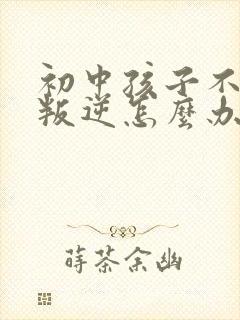 初中孩子不
叛逆怎麼办
蒔茶余幽